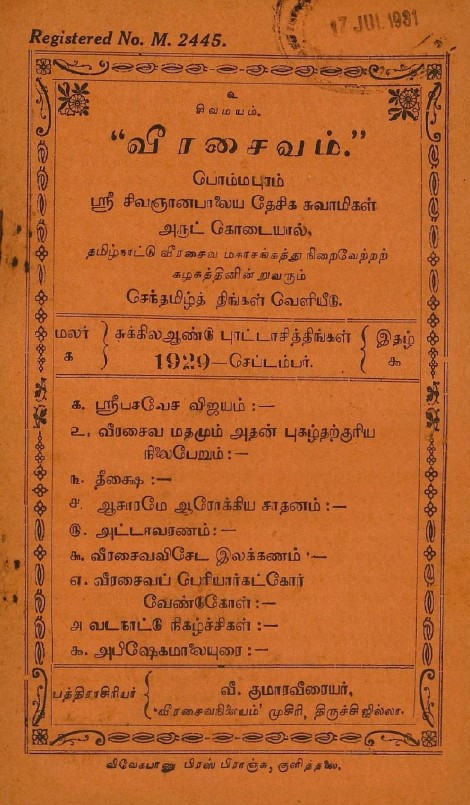 Registered No. M. 2445.
17 JUL 1931
உ
சிவமயம்.
“வீரசைவம்.”
பொம்மபுரம்
ஸ்ரீ சிவஞானபாலைய தேசிக சுவாமிகள்
அருட் கொடையால்,
தமிழ்நாட்டு வீரசைவ மகாசங்கத்து நிறைவேற்றற்
கழகத்தினின்றுவரும்
செந்தமிழ்த் திங்கள் வெளியீடு.
மலர் க
சுக்கிலஆண்டு புரட்டாசித்திங்கள்
1929—செப்டம்பர்.
இதழ் ௬
க. ஸ்ரீபசவேச விஜயம் :—
உ. வீரசைவ மதமும் அதன் புகழ்தற்குரிய
நிலைபேறும் :—
௩. தீக்ஷை :—
௪. ஆசாரமே ஆரோக்கிய சாதனம் :—
௫. அட்டாவரணம் :—
௬. வீரசைவவிசேட இலக்கணம் :—
எ. வீரசைவப் பெரியார்கட்கோர்
வேண்டுகோள் :—
அ வடநாட்டு நிகழ்ச்சிகள் :—
௯. அபிஷேகமாலையுரை :—
பத்திராசிரியர்
வீ. குமாரவீரையர்,
‘வீரசைவநிலையம்’ முசிரி, திருச்சிஜில்லா.
விவேகபாநு பிரஸ் பிராஞ்சு, குளித்தலை.